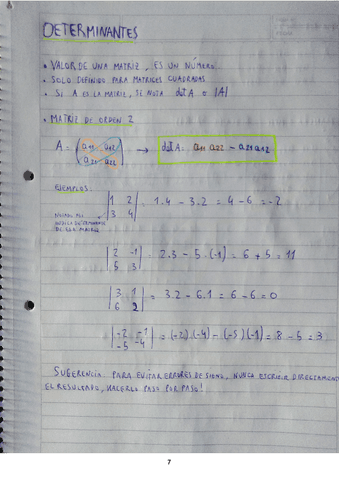 DETERMINANTES
• VALOR DE UNA MATRIZ, ES UN NÚMERO
• SOLO DEFINIDO PARA MATRICES CUADRADAS
• SI A ES LA MATRIZ, SE NOTA det A o |A|
• MATRIZ DE ORDEN 2
A = (a₁₁ a₁₂ / a₂₁ a₂₂) → det A: a₁₁ a₂₂ - a₂₁ a₁₂
EJEMPLOS:
|1 2 / 3 4| = 1.4 - 3.2 = 4 - 6 = -2
|2 -1 / 5 3| = 2.3 - 5.(-1) = 6 + 5 = 11
|3 1 / 6 2| = 3.2 - 6.1 = 6 - 6 = 0
|-2 -1 / -5 -4| = (-2).(-4) - (-5)(-1) = 8 - 5 = 3
SUGERENCIA: PARA EVITAR ERRORES DE SIGNO, NUNCA ESCRIBIR DIRECTAMENTE
EL RESULTADO, HACERLO PASO POR PASO!
7